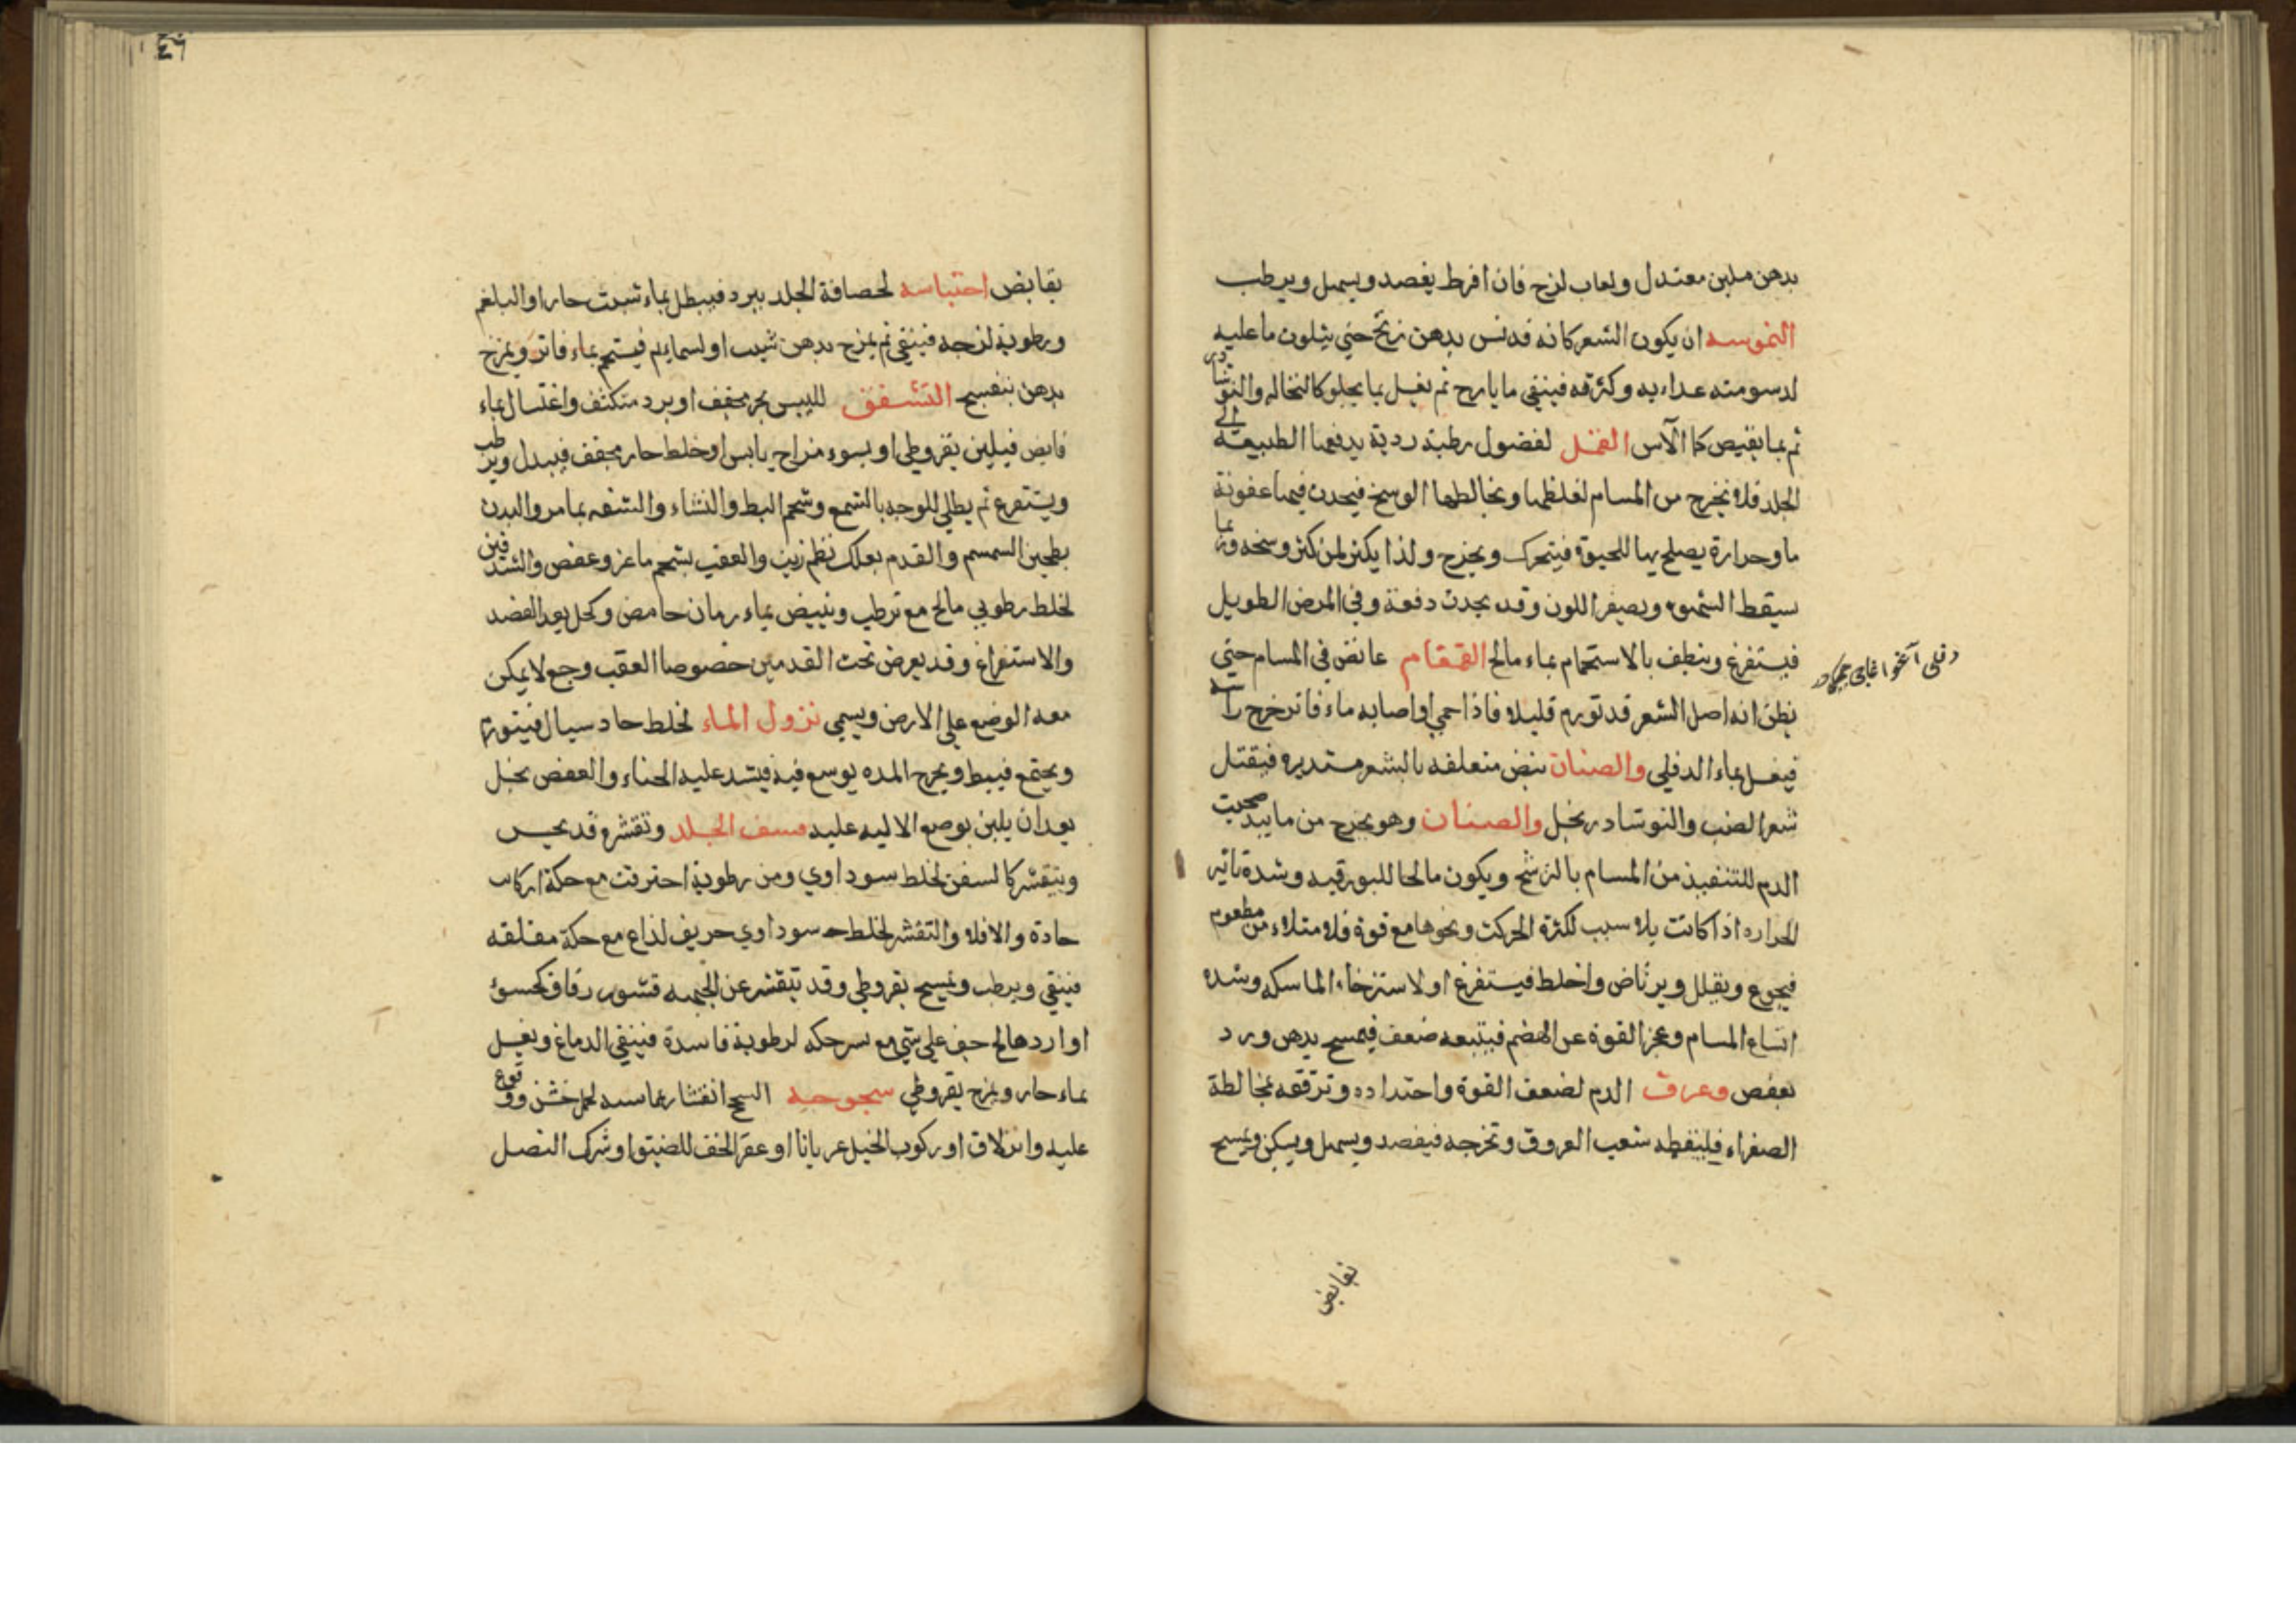 بدهن ملين معتدل ولعاب لزج فان افرط يفصد ويسهل ويرطب
ان يكون الشعر كانه قد نس بدهن زنخ حتي يتلون ما عليه
لدسومته وكثرته فينقي بايارج ثم يغسل بما يجلو كالنخاله والنوشادر
ثم بما يقبض كما الآس القمل لفضول رطبة ردية يدفعها الطبيعة الي
الجلد فلا تخرج من المسام لغلظها ويخالطها الوسخ فيحدث فيها عفونة
ما وحرارة يصلح بها للحيوة فيتحرك ويخرج ولذا يكثر لمن كثر وسخه وربما
سيقط الشهوه ويصفر اللون وقد يحدث دفعة وفي المرض الطويل
فيستفرغ وينظف بالاستحمام بماء مالح القمقام غائص في المسام حتي
يظن انه اصل الشعر قد تورم قليلا فاذا حمي او اصابه ماء فاتر خرج راسه
فيغسل بماء الدفلي والصئبان بيض متعلقه بالشعر مستديره فيقتل
والنوشادر بخل والصنان وهو يخرج من ما
الدم للتنفيذ من المسام بالترشح ويكون مالحا للبورقيه وشدة تاثير
الحراره اذا كانت بلا سبب لكثرة الحركت ونحوها مع قوة فلامتلاء من مطعوم
فيجوع ويقلل ويرتاض واخلط فيستفرغ او لاسترخاء الماسكه وشده
اتساع المسام وعجز القوة عن الهضم فيتبعه ضعف فيمسح بدهن ورد
بعفص وعرق الدم لضعف القوة واحتداده وترققه بمخالطة
الصفراء شعب العروق وتخرجه فيفصد ويسهل ويسكن ويمسح
بقابض
٤٦
بقابض احتباسه لحصافة الجلد ببرد فيبطل بماء شبت حارا او البلغم
ورطوبة لزجه فينقي ثم يمزج بدهن شبت او فيستحم بماء فاتر ويمزج
بدهن بنفسج التشقق لليبس بحر مجفف او برد متكثف واغتسال بماء
قابض فيلين بقروطي او بسوء مزاج يابس او خلط حار مجفف فيبدل ويرطب
ويستفرغ ثم يطلي للوجه بالشمع وشحم البط والنشاء والشفه بما مر والبدن
بطحين السمسم والقدم بعلك زيت والعقب بشحم ماعز وعفص
لخلط رطوبي مالح مع ترطب وتبيض بماء رمان حامض وكحل بعد الفصد
والاستفراغ وقد يعرض تحت القدمين خصوصا العقب وجع لا يمكن
معه الوضع علي الارض ويسمي نزول الماء لخلط حاد سيال
ويجتمع فيبط ويخرج المده فيشد عليه الحناء والعفص بخل
بعد ان يلين بوضع الاليه عليه الجلد وتقشره قد
ويتقشر كالسفن لخلط سوداوي ومن رطوبة احترقت مع حكة ان كانت
حادة والا فلا والتقشر لخلط سوداوي حريف لذاع مع حكة مقلقه
فينقي ويرطب ويمسح بقروطي وقد يتقشر عن الجبهه قشور رقاق
او جف علي شي مع حكه لرطوبة فاسدة فينقي الدماغ ويغسل
بماء حار ويمزج بقروطي السحج انقشار بماسه خشن ووقوع
عليه وانزلاق او ركوب الخيل عريانا او عقر الخف للضيق او شرك النصل